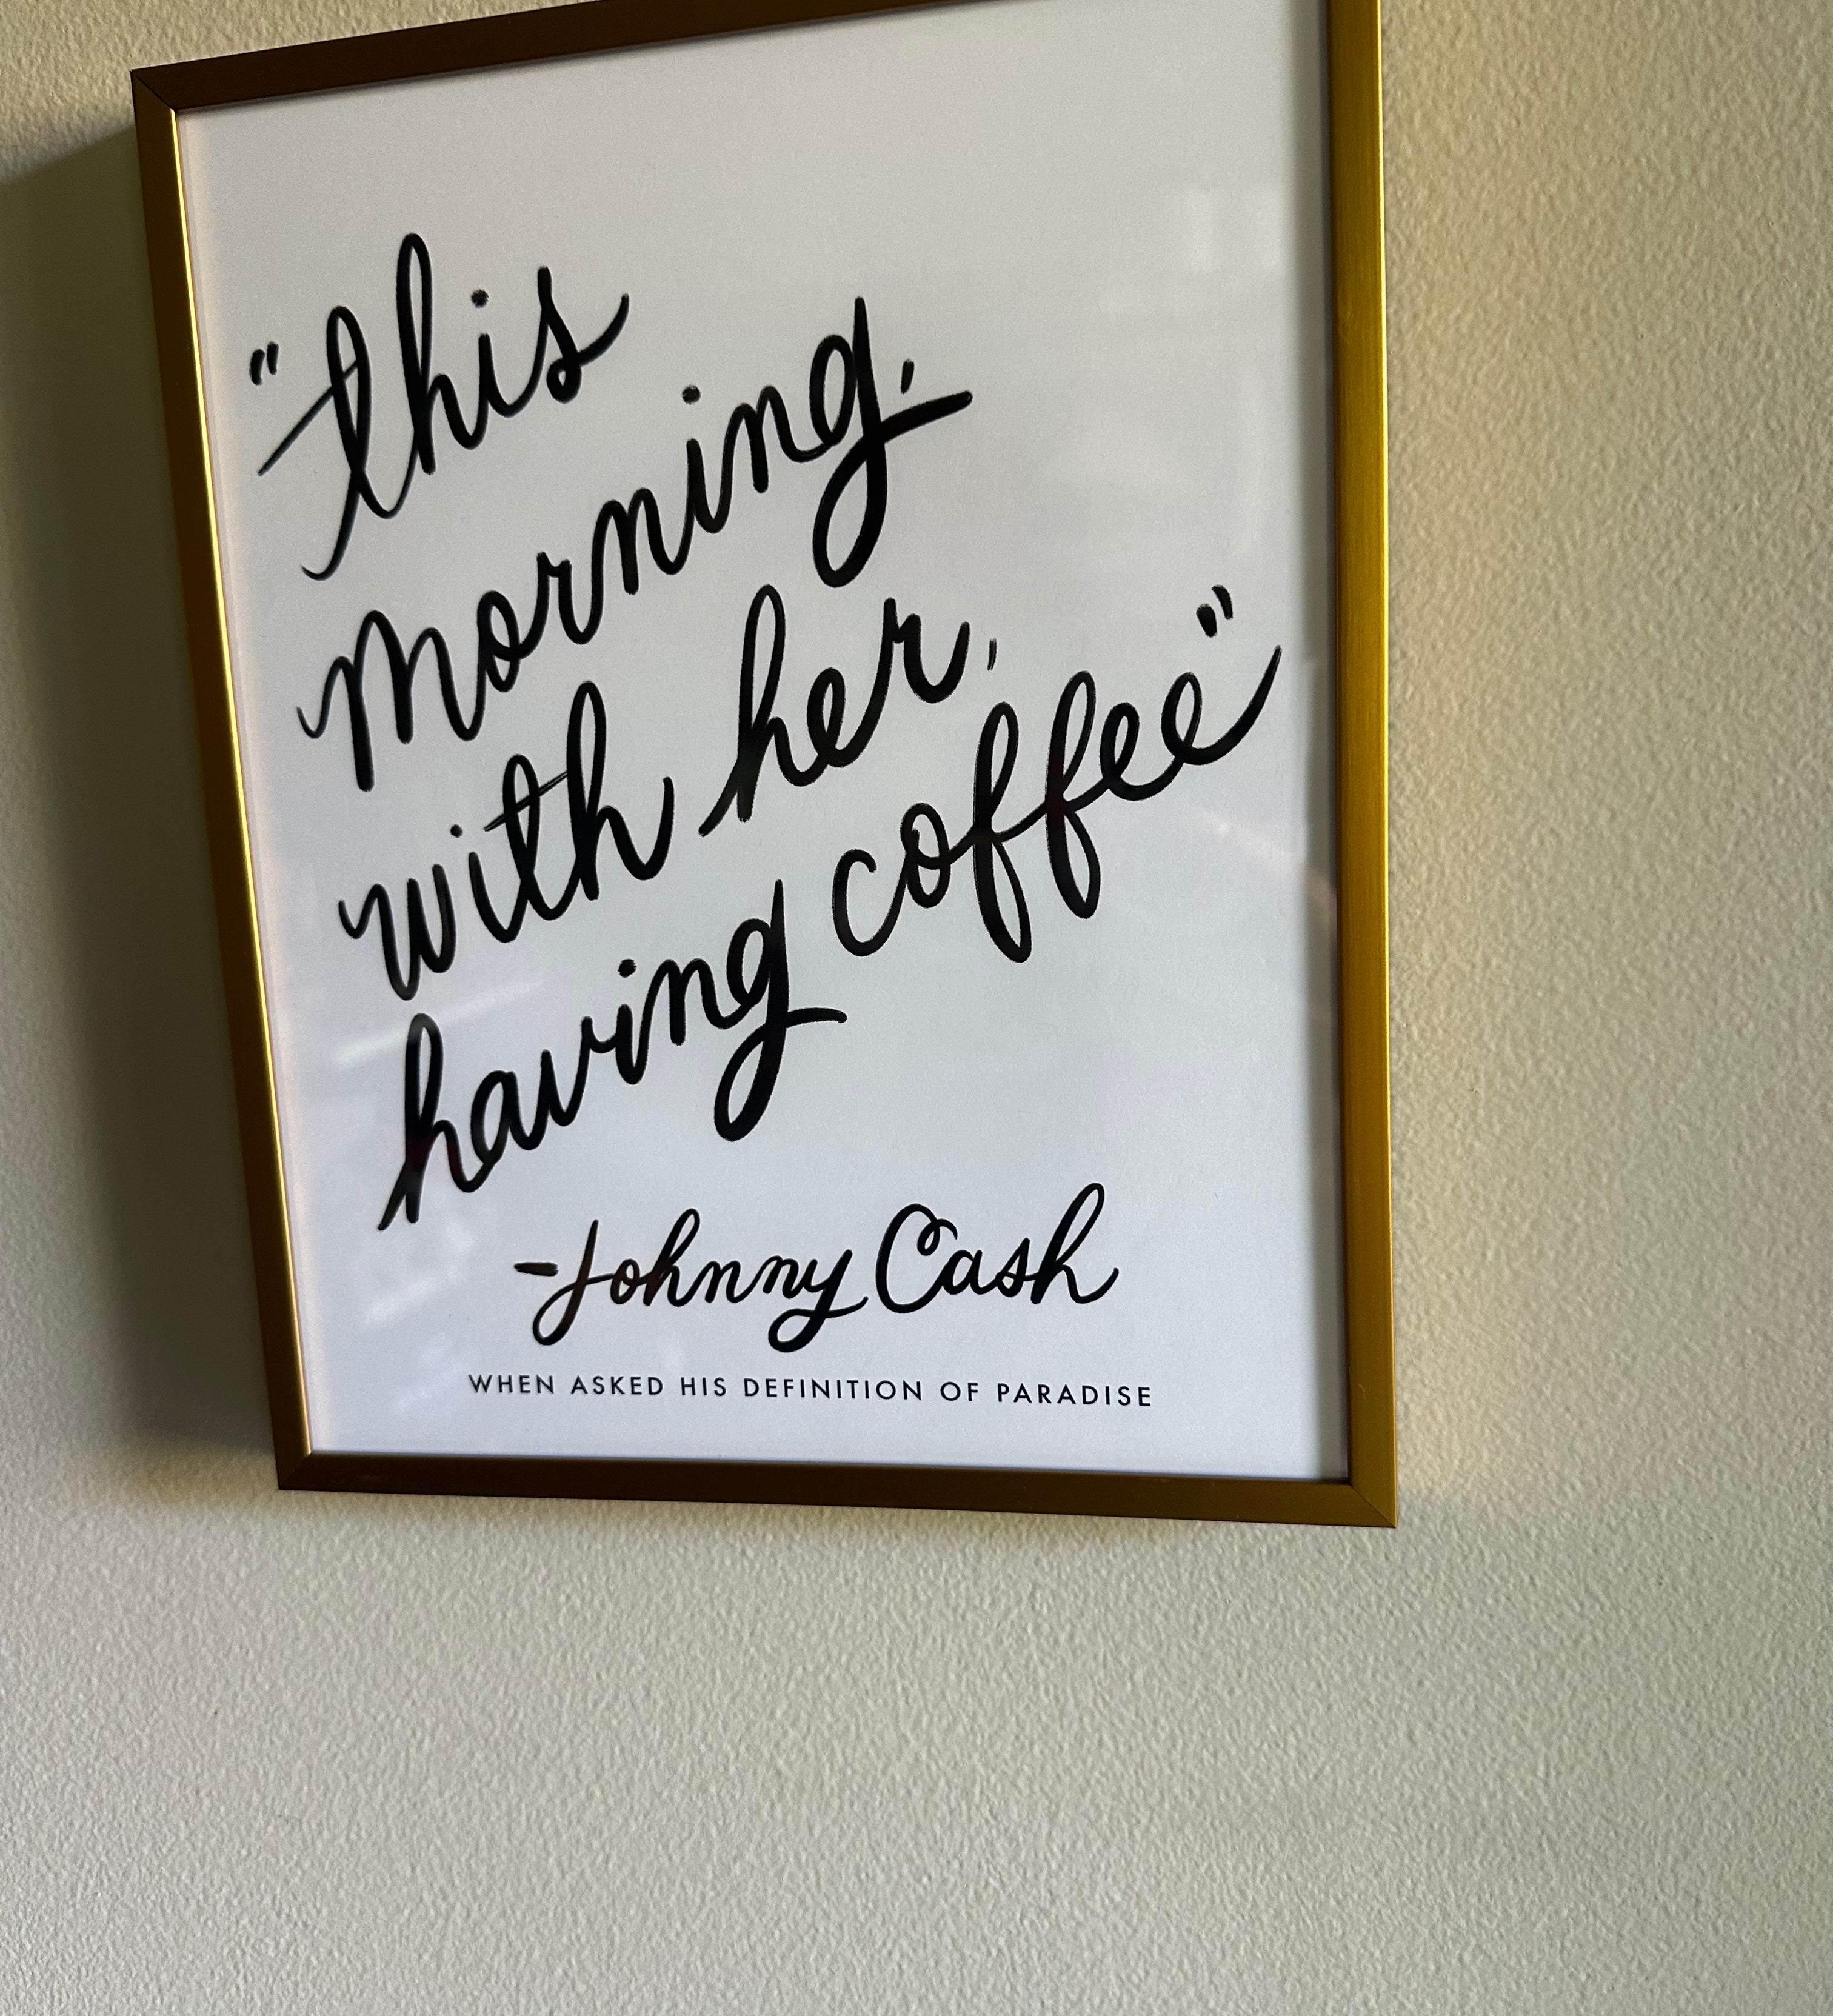 "this
morning,
with her,
having coffee"
-Johnny Cash
WHEN ASKED HIS DEFINITION OF PARADISE